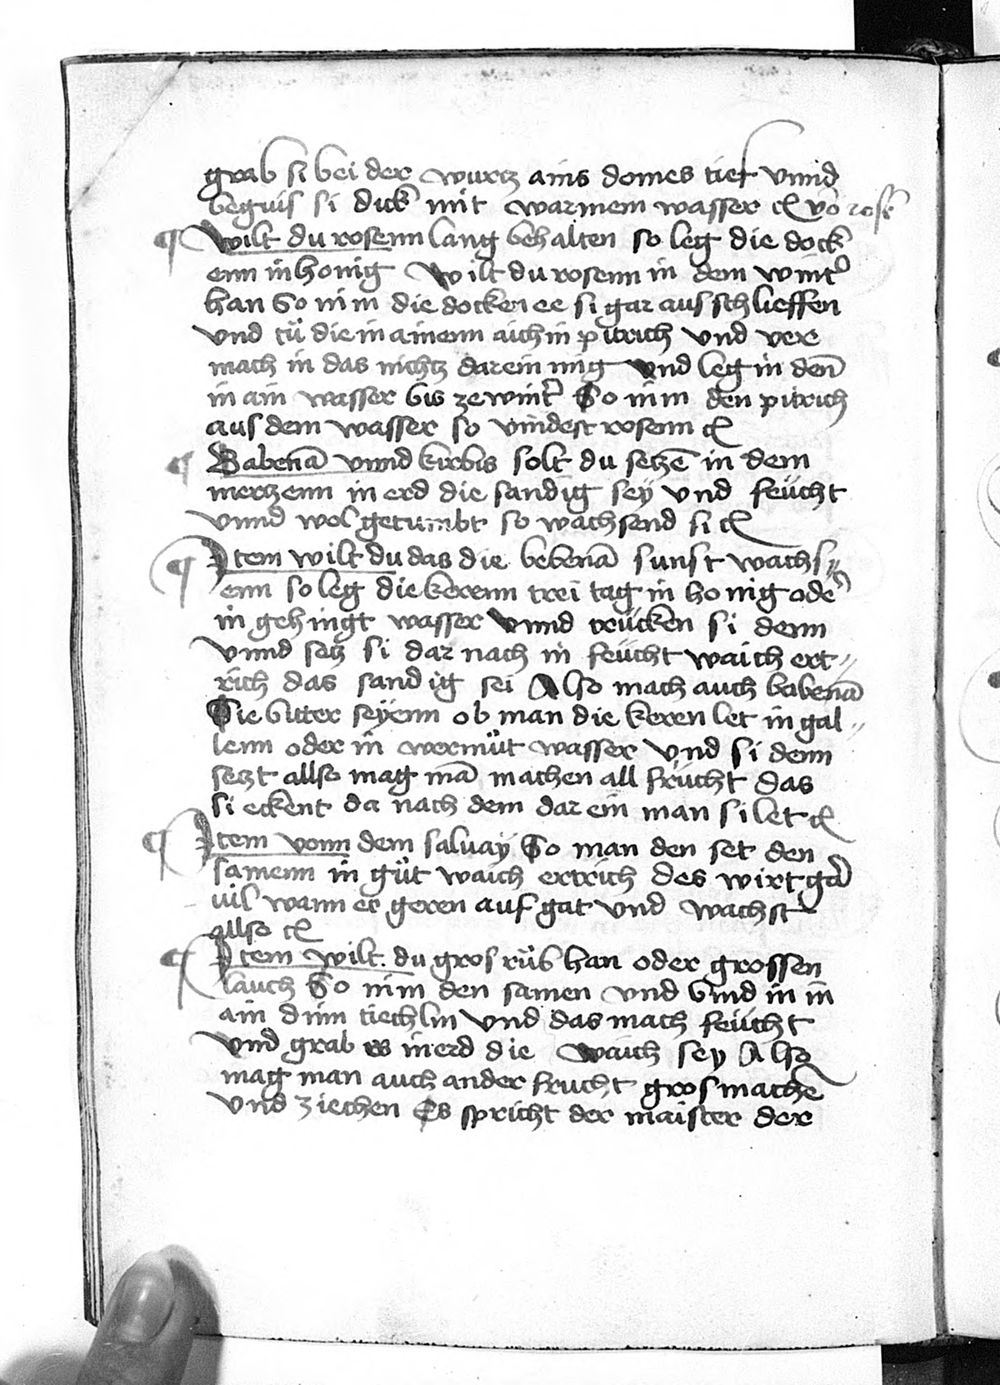 grab si bei der wurtz ains domes tief vnnd
beguis si dick mit warmem wasser ⁊c vō rosē
¶ Wilt du rosenn lang behalten so leg die dock
enn in honig Wilt du rosenn in dem wintˀ
han So nim die docken ee si gar aus schlieffen
vnd tů die in ainenn aichin pitrich vnd ver
mach in das nichtz darein mig vnd leg in deñ
in ain wasser bis ze wintˀ So nim den pitrich
aus dem wasser so vindest rosenn ⁊c
¶ Babenā vnnd kirbis solt du setzē in dem
mertzenn in erd die sandig sey vnd feücht
vnnd wol getumbt so wachsend si ⁊c
¶ Item wilt du das die bebenā sunst wachs⸗
enn so leg die kerenn trei tag in honig odeˀ
in gehingt wasser vnnd trücken si denn
vnnd setz si dar nach in feücht waich ert⸗
rich das sandig sei Also mach auch babenā
Sie bitter seyenn ob man die keren let in gal⸗
lenn oder in wermůt wasser vnd si denn
setzt allso mag mā machen all frücht das
si eckent da nach dem dar ein man si let ⁊c
¶ Item vonn dem saluay So man den set den
samenn in gůt waich ertrich des wirt gar
uil wann er geren auf gat vnd wachst
allso ⁊c
¶ Item wilt du gros růb han oder grossen
lauch So nim den samen vnd bind in in
ain dinn tiechlin vnd das mach feücht
vnd grab es in erd die waich sey Also
mag man auch ander frucht gros machē
vnd ziechen Es spricht der maister der